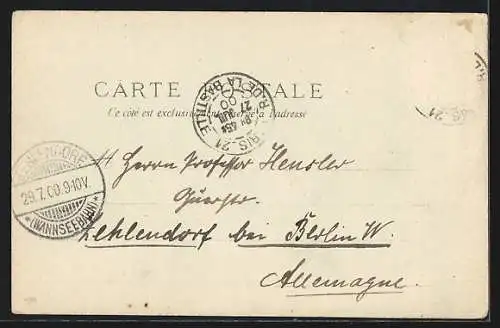 CARTE POSTALE
Ce côté est exclusivement réservé à l'adresse
PARIS_21
R. DE LA BASTILLE
27
JUIL
00
ZEHLENDORF
29.7.00.9-10V.
*(WANNSEEBAHN)*
Herrn Professor Hensler
Zehlendorf bei Berlin W.
Allemagne.